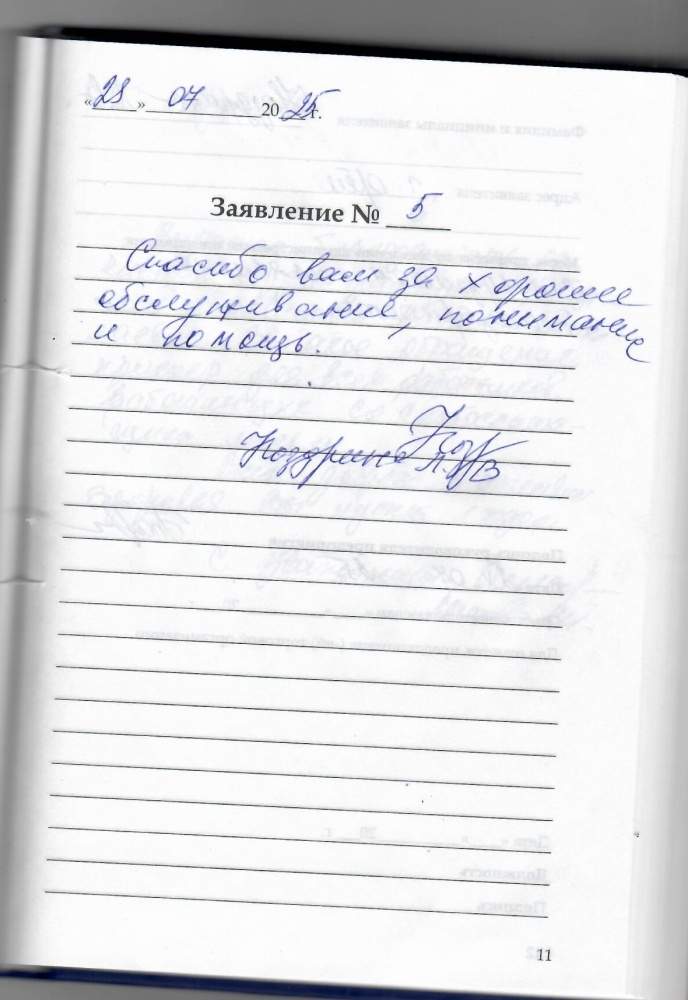 «28» 07 2025 г.
Заявление № 5
Спасибо вам за хорошее
обслуживание, понимание
и помощь.
11